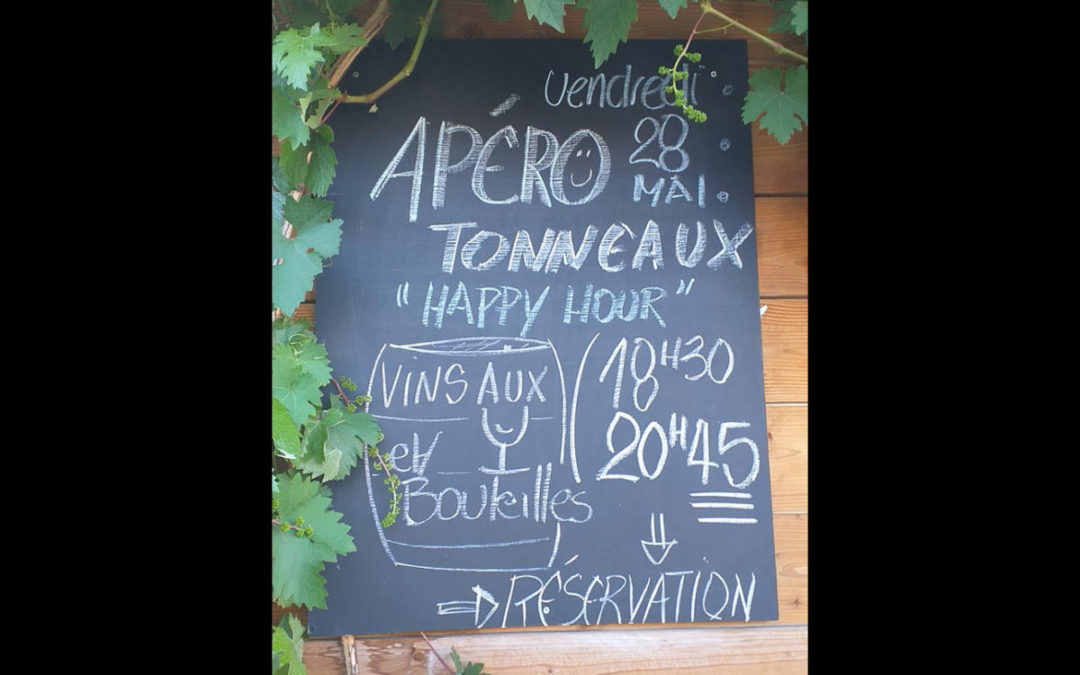 Vendredi
APÉRO 28
MAI.
TONNEAUX
"HAPPY HOUR"
VINS AUX
et
Bouteilles
18H30
20H45
⇓
⇒ RÉSERVATION